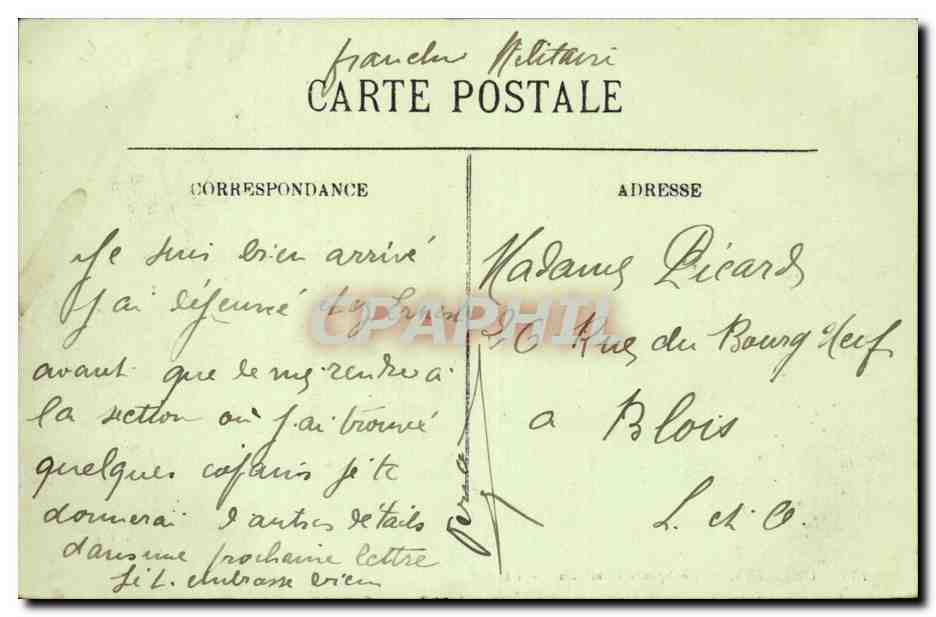 franchise Militaire
CARTE POSTALE
CORRESPONDANCE
ADRESSE
Je suis bien arrivé
J'ai déjeuné chez Ernest
avant que de me rendre à
la section où j'ai trouvé
quelques copains je te
donnerai d'autres détails
dans une prochaine lettre
Je t. embrasse bien
Madame Picard
26 Rue du Bourg Neuf
a Blois
L. et C.
CPAPHIL